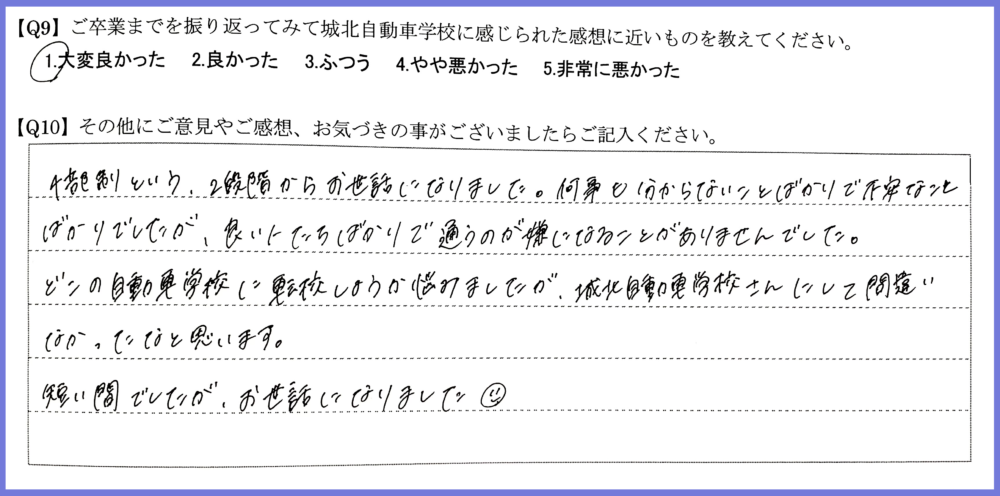 【Q9】ご卒業までを振り返ってみて城北自動車学校に感じられた感想に近いものを教えてください。
1.大変良かった 2.良かった 3.ふつう 4.やや悪かった 5.非常に悪かった
【Q10】その他にご意見やご感想、お気づきの事がございましたらご記入ください。
という、2段階からお世話になりました。何事も分からないことばかりで不安なこと
ばかりでしたが、良い人たちばかりで通うのが嫌になることがありませんでした。
どこの自動車学校に転校しようか悩みましたが、城北自動車学校さんにして間違い
なかったなと思います。
短い間でしたが、お世話になりました☺